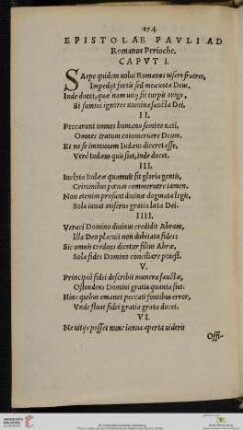 EPISTOLAE PAVLI AD
Romanos Perioche.
CAPVT I.
SAepe quidem volui Romanos visere fratres,
Impedijt fortis sed mea vota Deus.
Inde docet, quae nam vitijs sit turpis origo,
Si summi ignores numina sancta Dei.
II.
Peccarunt omnes humano semine nati,
Omnes tratum commeruere Deum.
Et ne se immunem Iudaeus diceret esse,
Vere Iudaeus quis siet, inde docet.
III.
Inclyta Iudaeae quamuis sit gloria gentis,
Criminibus poenas commeruere tamen.
Non etenim prosunt divinae dogmata legis,
Sola iuvat miseros gratia lata Dei.
IIII.
Veraci Domino divinus credidit Abram,
Illa Deo placuit non dubitata fides:
Sic omnis credens dicetur filius Abrae,
Sola fides Domino conciliare potest.
V.
Principio fidei describit munera sanctae,
Ostendens Domini gratia quanta siet.
Hinc quibus emanet peccati fontibus error,
Vnde fluat fidei gratia grata docet.
VI.
Ne vitijs posset nunc ianua aperta videri
Offi-